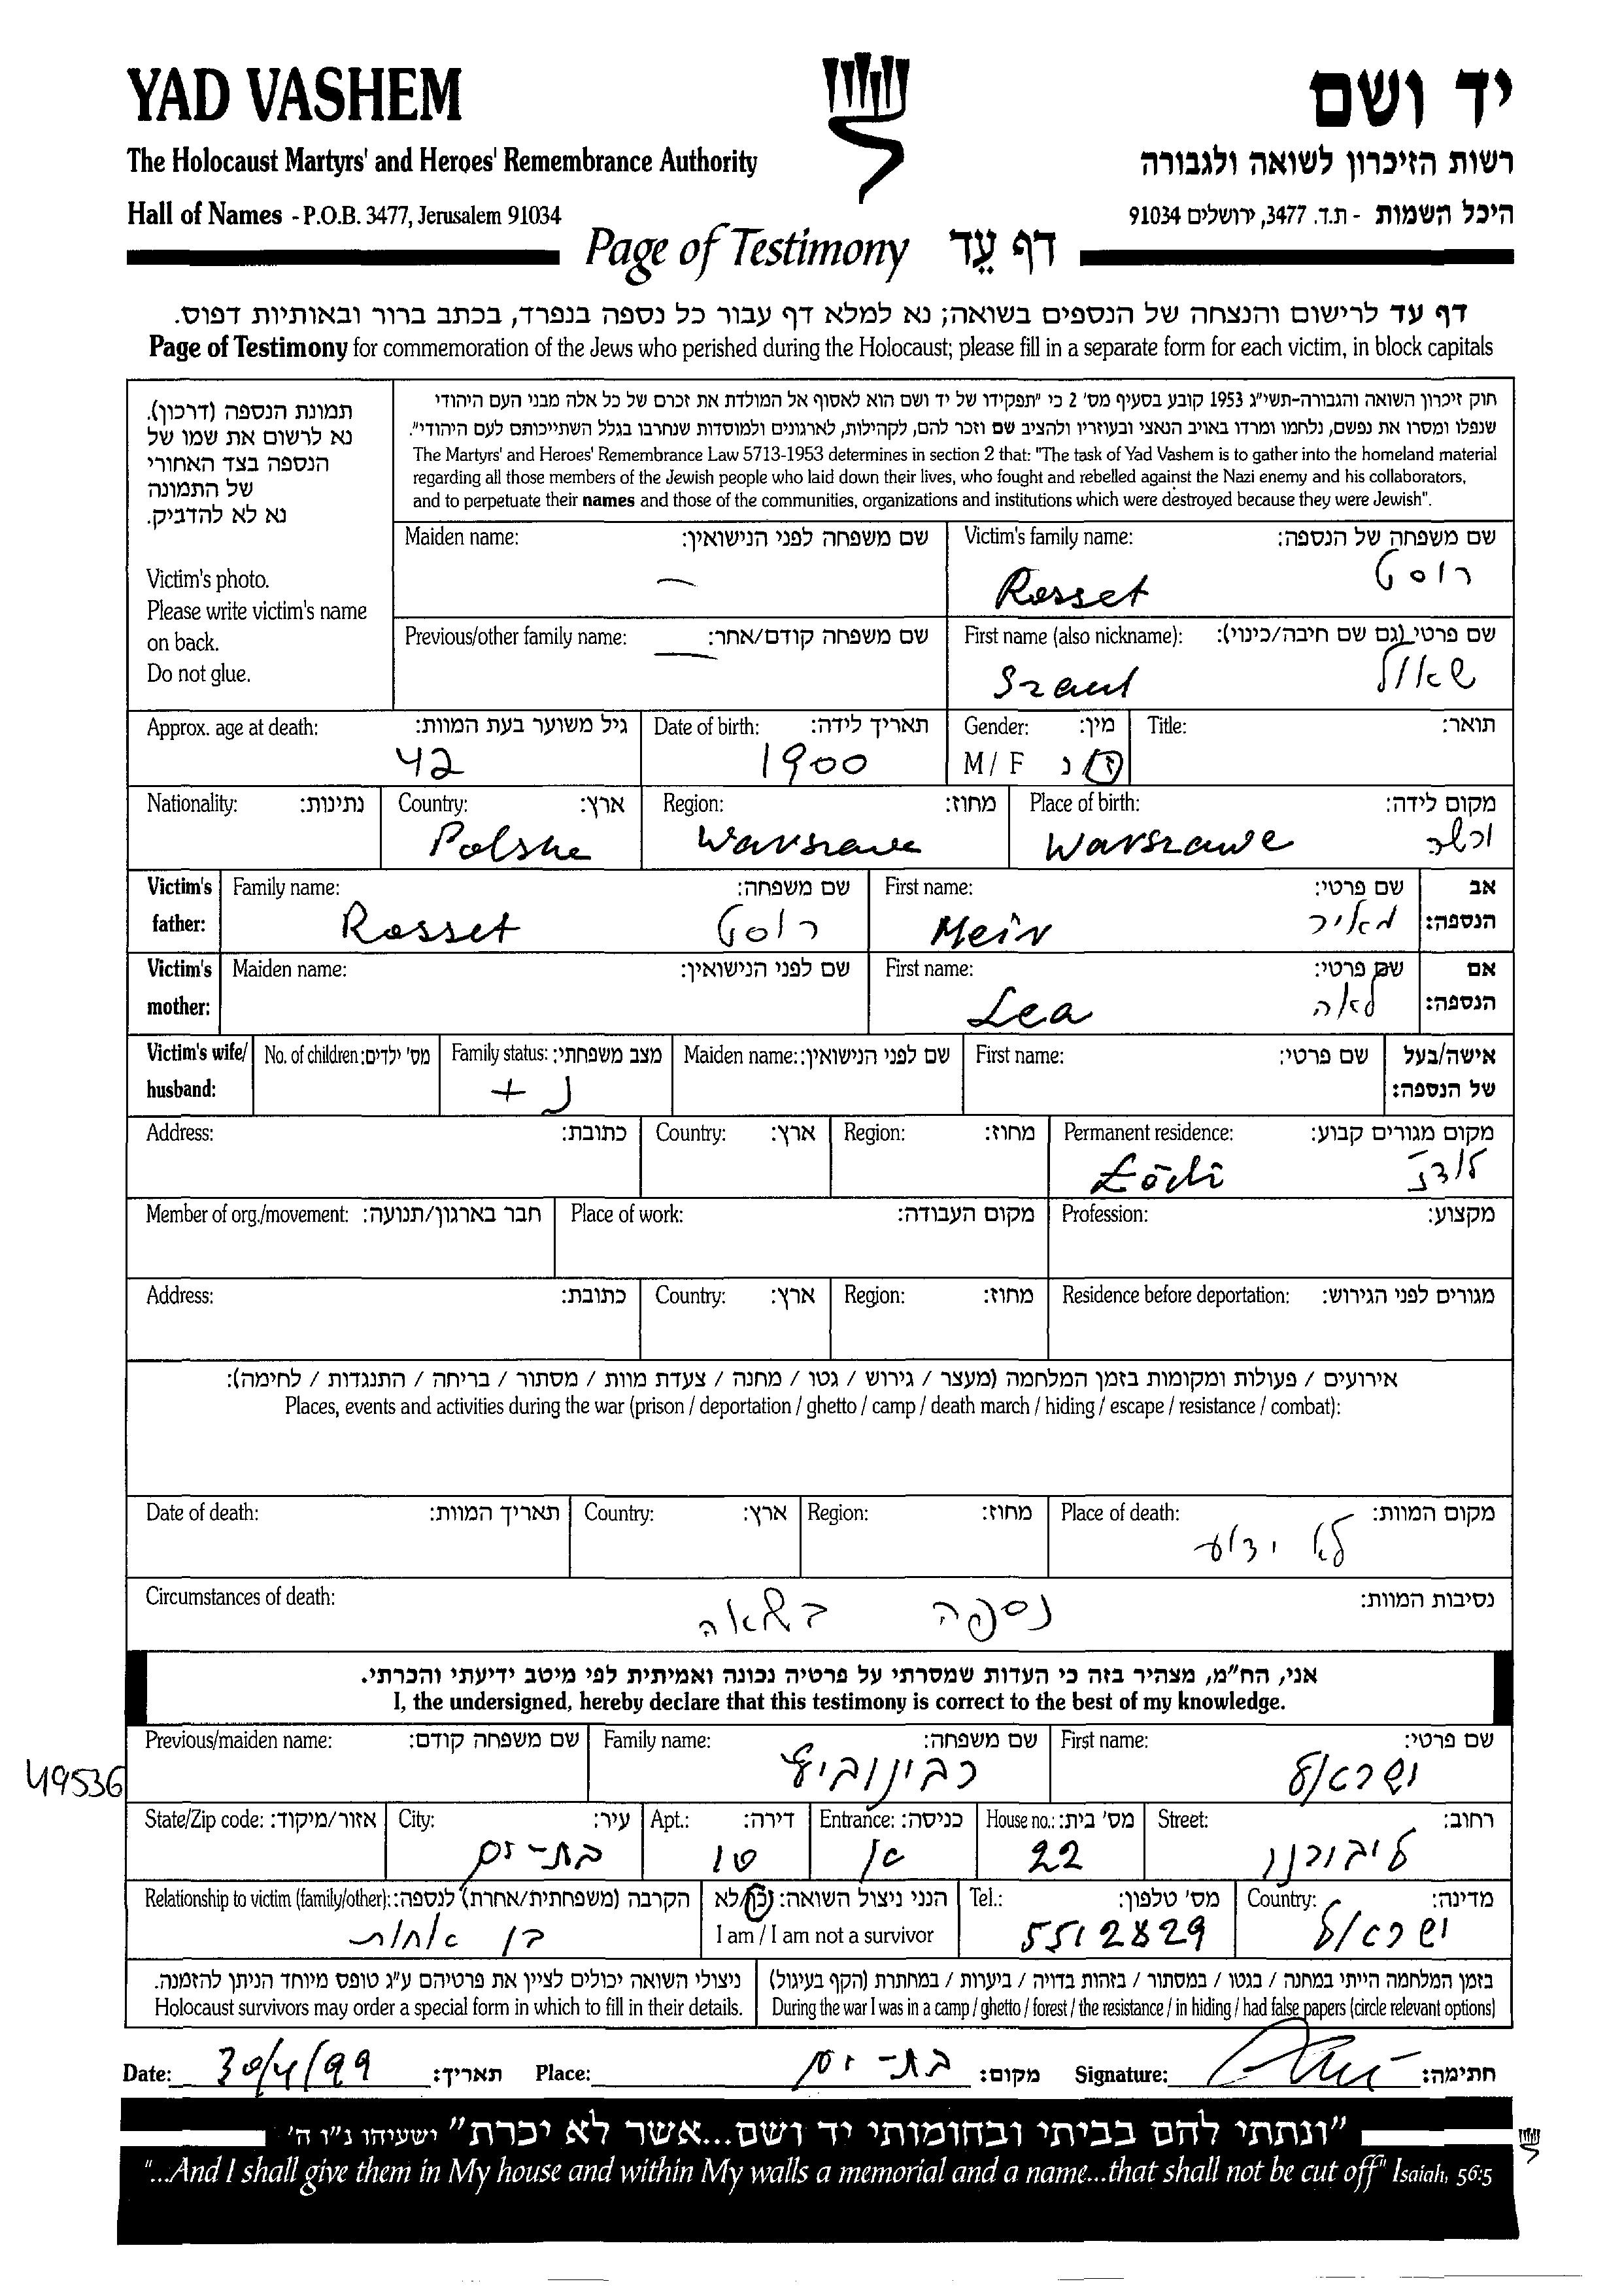 YAD VASHEM
יד ושם
The Holocaust Martyrs' and Heroes' Remembrance Authority
רשות הזיכרון לשואה ולגבורה
Hall of Names - P.O.B. 3477, Jerusalem 91034
היכל השמות - ת.ד. 3477, ירושלים 91034
Page of Testimony דף עֵד
דף עד לרישום והנצחה של הנספים בשואה; נא למלא דף עבור כל נספה בנפרד, בכתב ברור ובאותיות דפוס.
Page of Testimony for commemoration of the Jews who perished during the Holocaust; please fill in a separate form for each victim, in block capitals
תמונת הנספה (דרכון).
נא לרשום את שמו של
הנספה בצד האחורי
של התמונה
נא לא להדביק.
Victim's photo.
Please write victim's name
on back.
Do not glue.
חוק זיכרון השואה והגבורה-תשי"ג 1953 קובע בסעיף מס' 2 כי "תפקידו של יד ושם הוא לאסוף אל המולדת את זכרם של כל אלה מבני העם היהודי
שנפלו ומסרו את נפשם, נלחמו ומרדו באויב הנאצי ובעוזריו ולהציב שם וזכר להם, לקהילות, לארגונים ולמוסדות שנחרבו בגלל השתייכותם לעם היהודי".
The Martyrs' and Heroes' Remembrance Law 5713-1953 determines in section 2 that: "The task of Yad Vashem is to gather into the homeland material
regarding all those members of the Jewish people who laid down their lives, who fought and rebelled against the Nazi enemy and his collaborators,
and to perpetuate their names and those of the communities, organizations and institutions which were destroyed because they were Jewish".
Maiden name: שם משפחה לפני הנישואין:
—
Victim's family name: שם משפחה של הנספה:
Rosset רוסט
Previous/other family name: שם משפחה קודם/אחר:
—
First name (also nickname): שם פרטי (גם שם חיבה/כינוי):
Szaul שאול
Approx. age at death: גיל משוער בעת המוות:
42
Date of birth: תאריך לידה:
1900
Gender: מין:
M / F ז נ
Title: תואר:
Nationality: נתינות:
Country: ארץ:
Polska
Region: מחוז:
Warszawa
Place of birth: מקום לידה:
Warszawa ורשה
Victim's father:
Family name: שם משפחה:
Rosset רוסט
First name: שם פרטי:
Meir מאיר
אב הנספה:
Victim's mother:
Maiden name: שם לפני הנישואין:
First name: שם פרטי:
Lea לאה
אם הנספה:
Victim's wife/ husband:
No. of children: מס' ילדים:
Family status: מצב משפחתי:
נ +
Maiden name: שם לפני הנישואין:
First name: שם פרטי:
אישה/בעל של הנספה:
Address: כתובת:
Country: ארץ:
Region: מחוז:
Permanent residence: מקום מגורים קבוע:
Łódź לודז
Member of org./movement: חבר בארגון/תנועה:
Place of work: מקום העבודה:
Profession: מקצוע:
Address: כתובת:
Country: ארץ:
Region: מחוז:
Residence before deportation: מגורים לפני הגירוש:
אירועים / פעולות ומקומות בזמן המלחמה (מעצר / גירוש / גטו / מחנה / צעדת מוות / מסתור / בריחה / התנגדות / לחימה):
Places, events and activities during the war (prison / deportation / ghetto / camp / death march / hiding / escape / resistance / combat):
Date of death: תאריך המוות:
Country: ארץ:
Region: מחוז:
Place of death: מקום המוות:
לא ידוע
Circumstances of death: נסיבות המוות:
נספה בשואה
אני, הח"מ, מצהיר בזה כי העדות שמסרתי על פרטיה נכונה ואמיתית לפי מיטב ידיעתי והכרתי.
I, the undersigned, hereby declare that this testimony is correct to the best of my knowledge.
49536
Previous/maiden name: שם משפחה קודם:
Family name: שם משפחה:
רבינוביץ
First name: שם פרטי:
ישראל
State/Zip code: אזור/מיקוד:
City: עיר:
בת-ים
Apt.: דירה:
Entrance: כניסה:
House no.: מס' בית:
22
Street: רחוב:
ליבורנו
Relationship to victim (family/other): הקרבה (משפחתית/אחרת) לנספה:
בן אחות
הנני ניצול השואה: כן/לא
I am / I am not a survivor
Tel.: מס' טלפון:
5512829
Country: מדינה:
ישראל
ניצולי השואה יכולים לציין את פרטיהם ע"ג טופס מיוחד הניתן להזמנה.
Holocaust survivors may order a special form in which to fill in their details.
בזמן המלחמה הייתי במחנה / בגטו / במסתור / בזהות בדויה / ביערות / במחתרת (הקף בעיגול)
During the war I was in a camp / ghetto / forest / the resistance / in hiding / had false papers (circle relevant options)
Date: 30/4/99 תאריך: Place: בת-ים מקום: Signature: חתימה:
"ונתתי להם בביתי ובחומותי יד ושם...אשר לא יכרת" ישעיהו נ"ו ה'
"...And I shall give them in My house and within My walls a memorial and a name...that shall not be cut off" Isaiah, 56:5